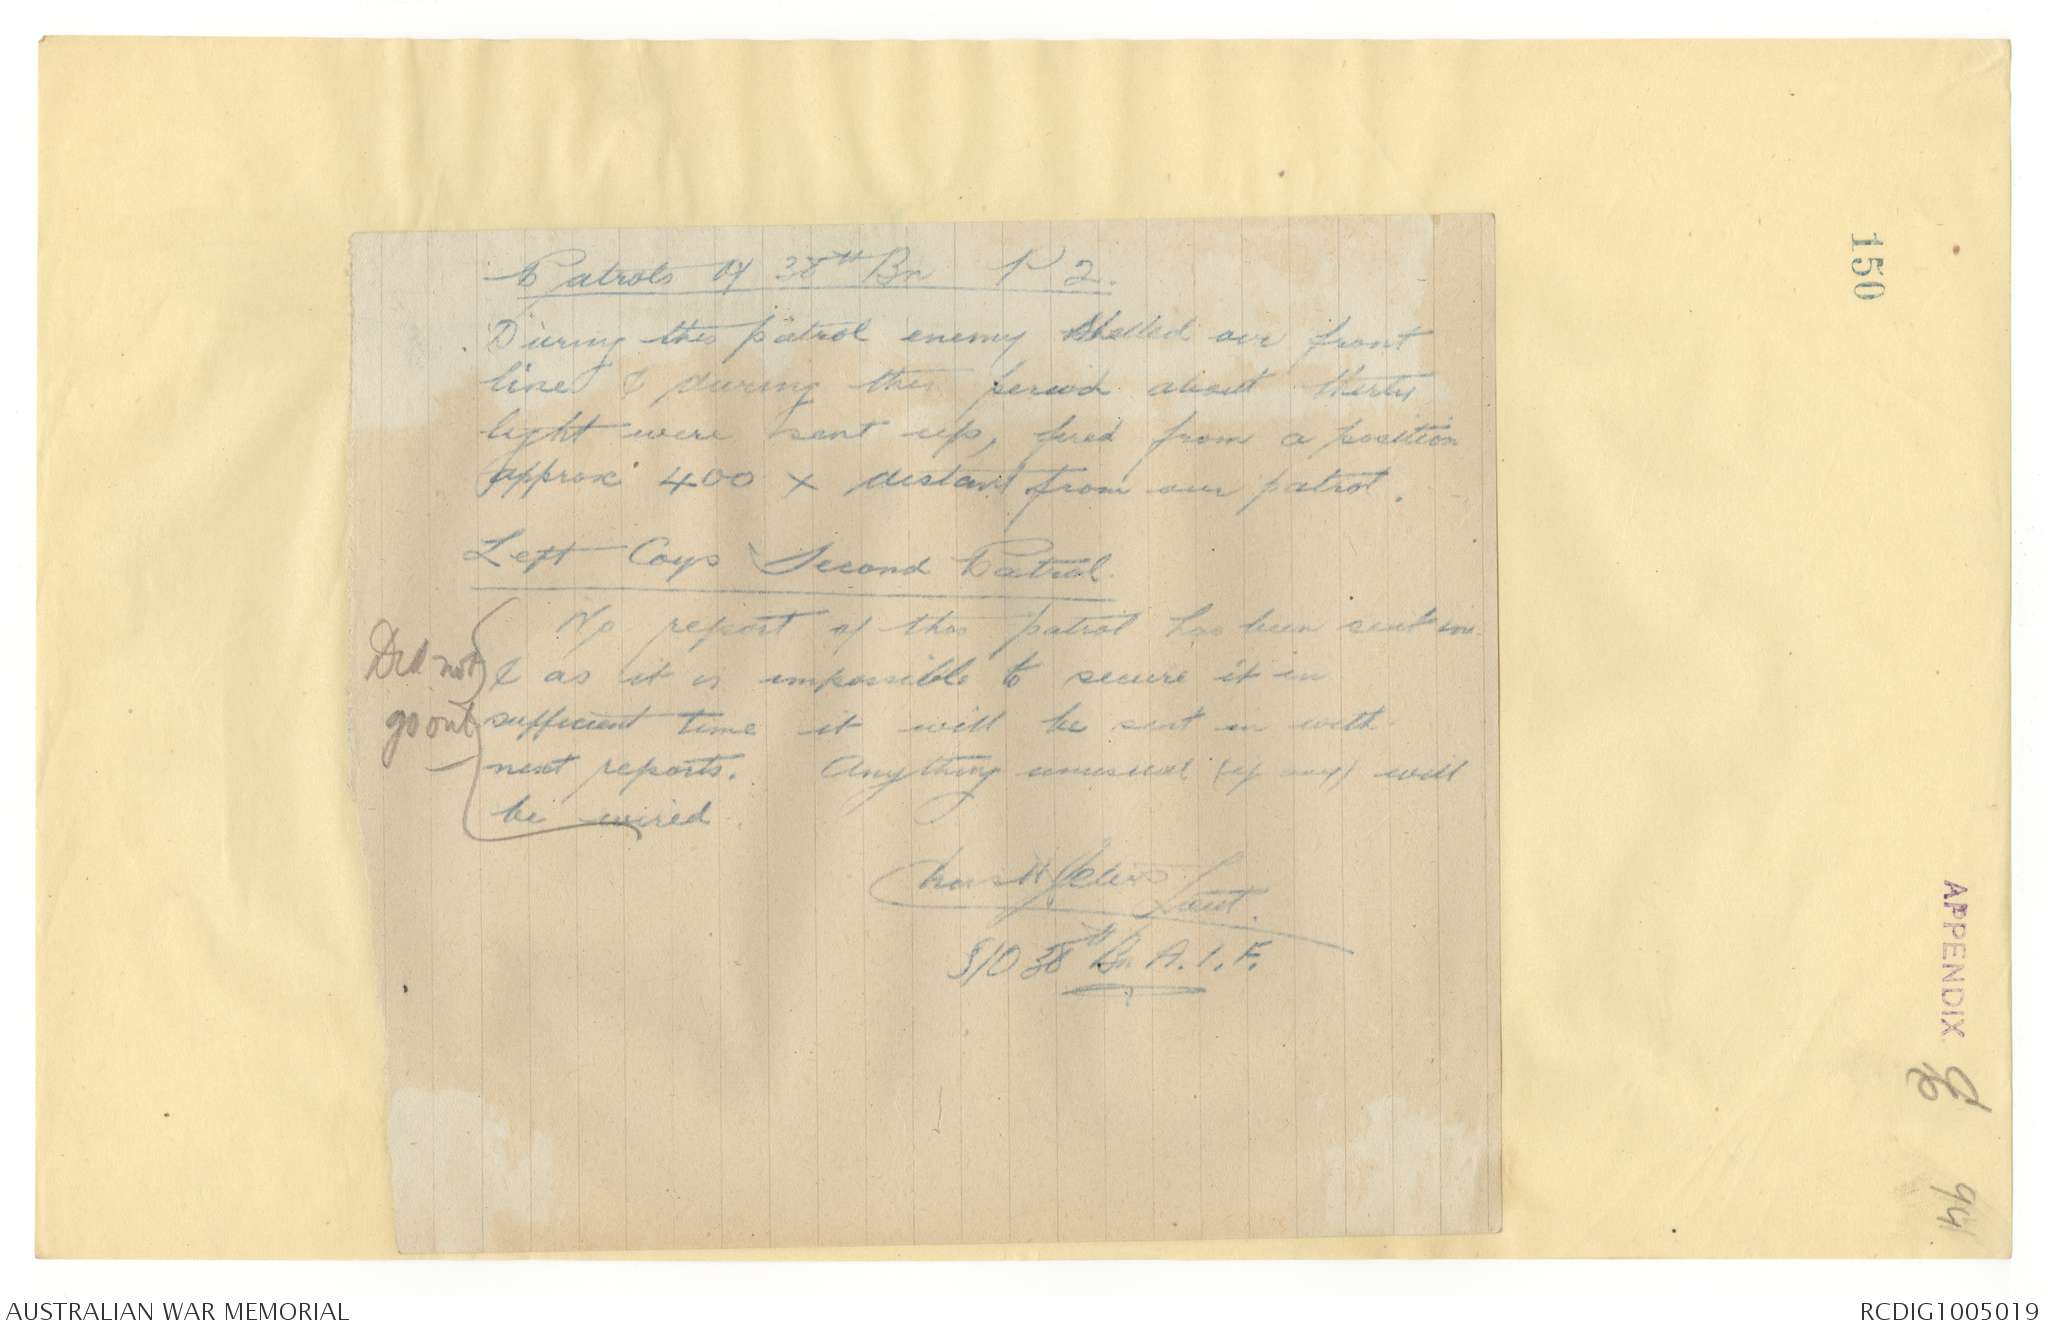 Patrols of 38th Bn P 2.
During this patrol enemy shelled our front
line & during this period about thirty
light were sent up, fired from a position
approx 400 x distant from our patrol.
Left Coys Second Patrol.
No report of this patrol has been sent in
& as it is impossible to secure it in
sufficient time it will be sent in with
next reports. Anything unusual (if any) will
be wired.
Did not
go out
Chas H Peters Lieut.
S/O 38th Bn A.I.F.
150
APPENDIX
94
AUSTRALIAN WAR MEMORIAL
RCDIG1005019